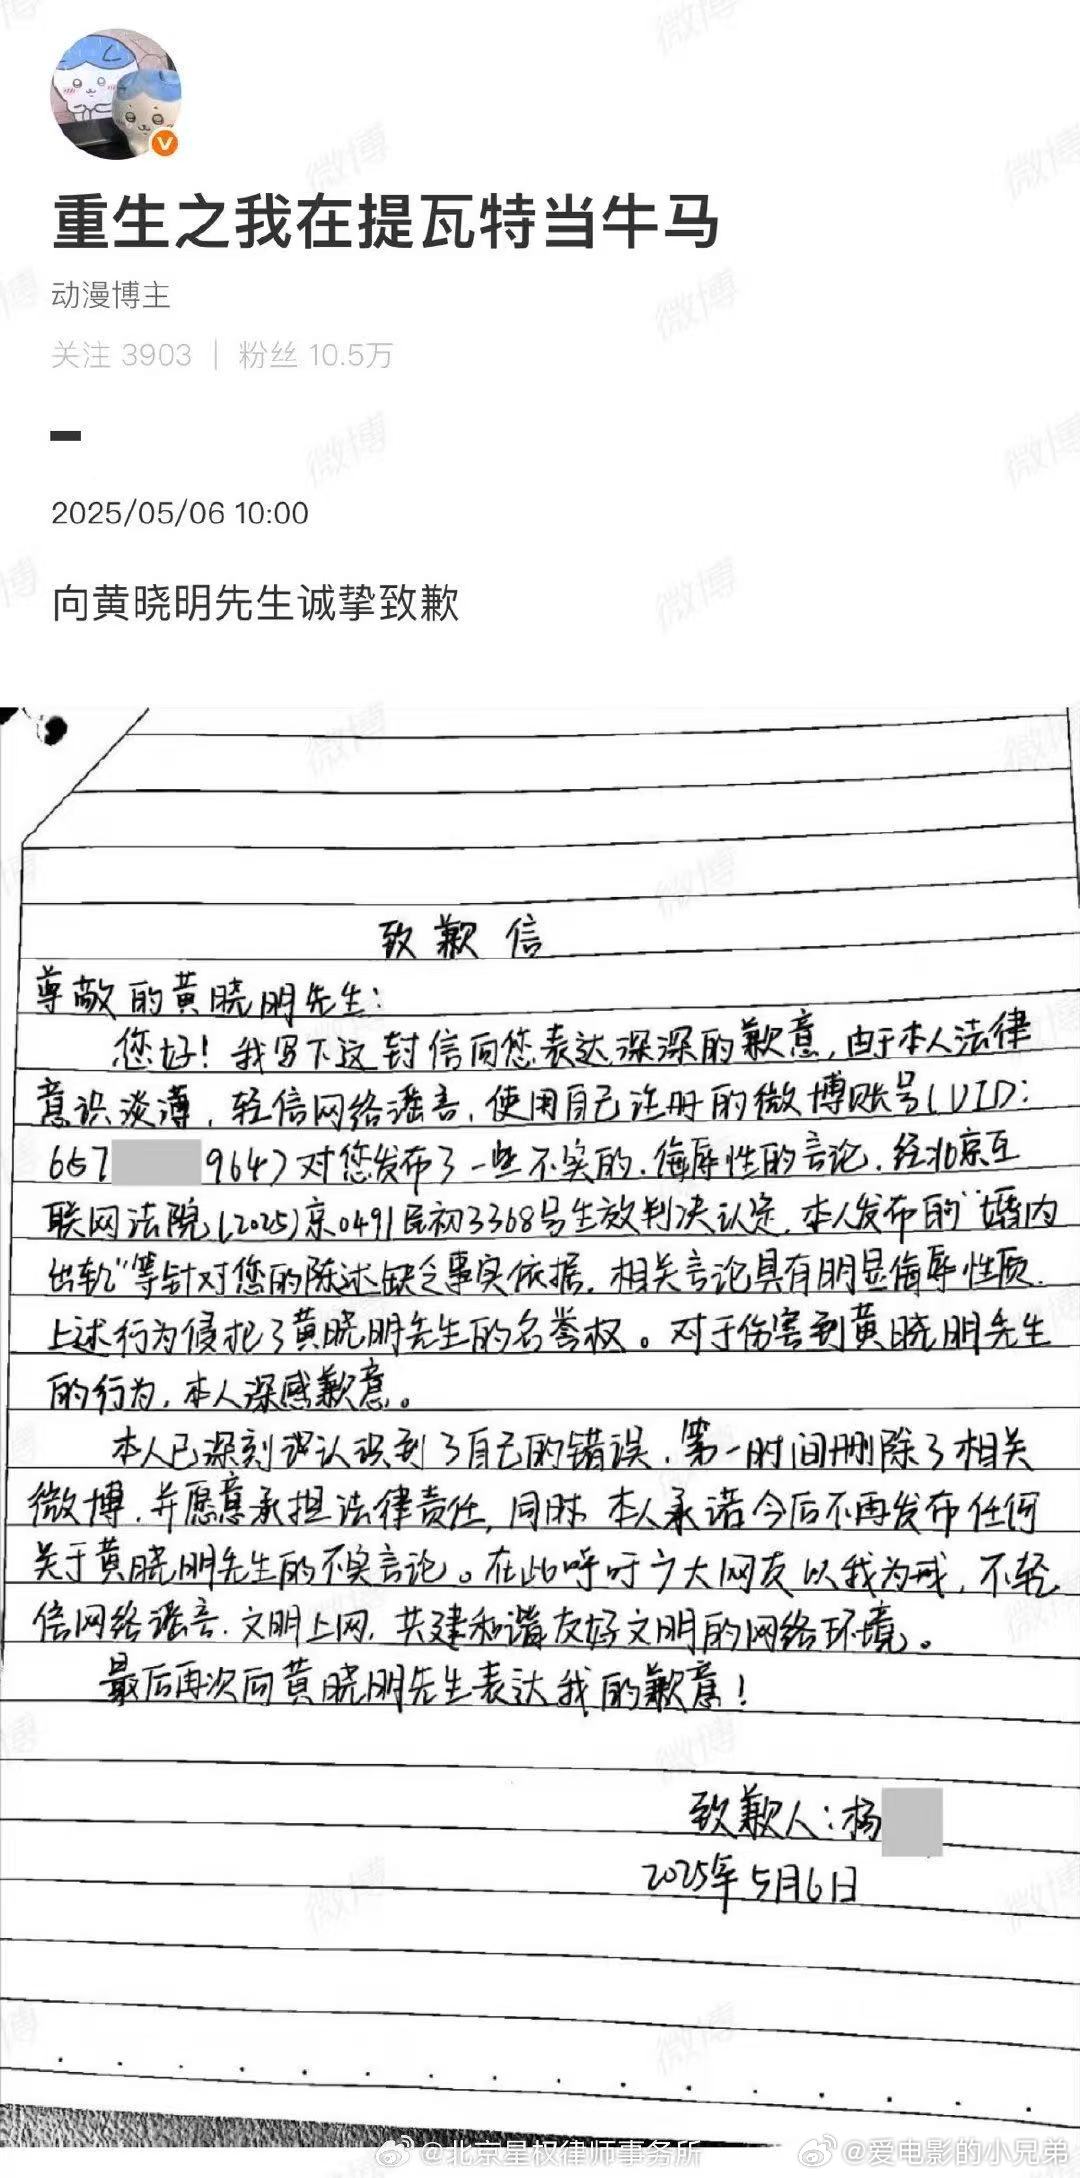 重生之我在提瓦特当牛马
动漫博主
关注 3903 | 粉丝 10.5万
2025/05/06 10:00
向黄晓明先生诚挚致歉
致歉信
尊敬的黄晓明先生:
您好！我写下这封信向您表达深深的歉意,由于本人法律
意识淡薄,轻信网络谣言,使用自己注册的微博账号(UID:
657 9647对您发布了一些不实的、侮辱性的言论,经北京互
联网法院(2025)京0491民初3368号生效判决认定,本人发布的“婚内
出轨”等针对您的陈述缺乏事实依据,相关言论具有明显侮辱性质,
上述行为侵犯了黄晓明先生的名誉权。对于伤害到黄晓明先生
的行为,本人深感歉意。
本人已深刻认识到了自己的错误,第一时间删除了相关
微博,并愿意承担法律责任,同时,本人承诺今后不再发布任何
关于黄晓明先生的不实言论。在此呼吁广大网友以我为戒,不轻
信网络谣言,文明上网,共建和谐友好文明的网络环境。
最后再次向黄晓明先生表达我的歉意!
致歉人:杨
2025年5月6日
@北京星权律师事务所
@爱电影的小兄弟
微博